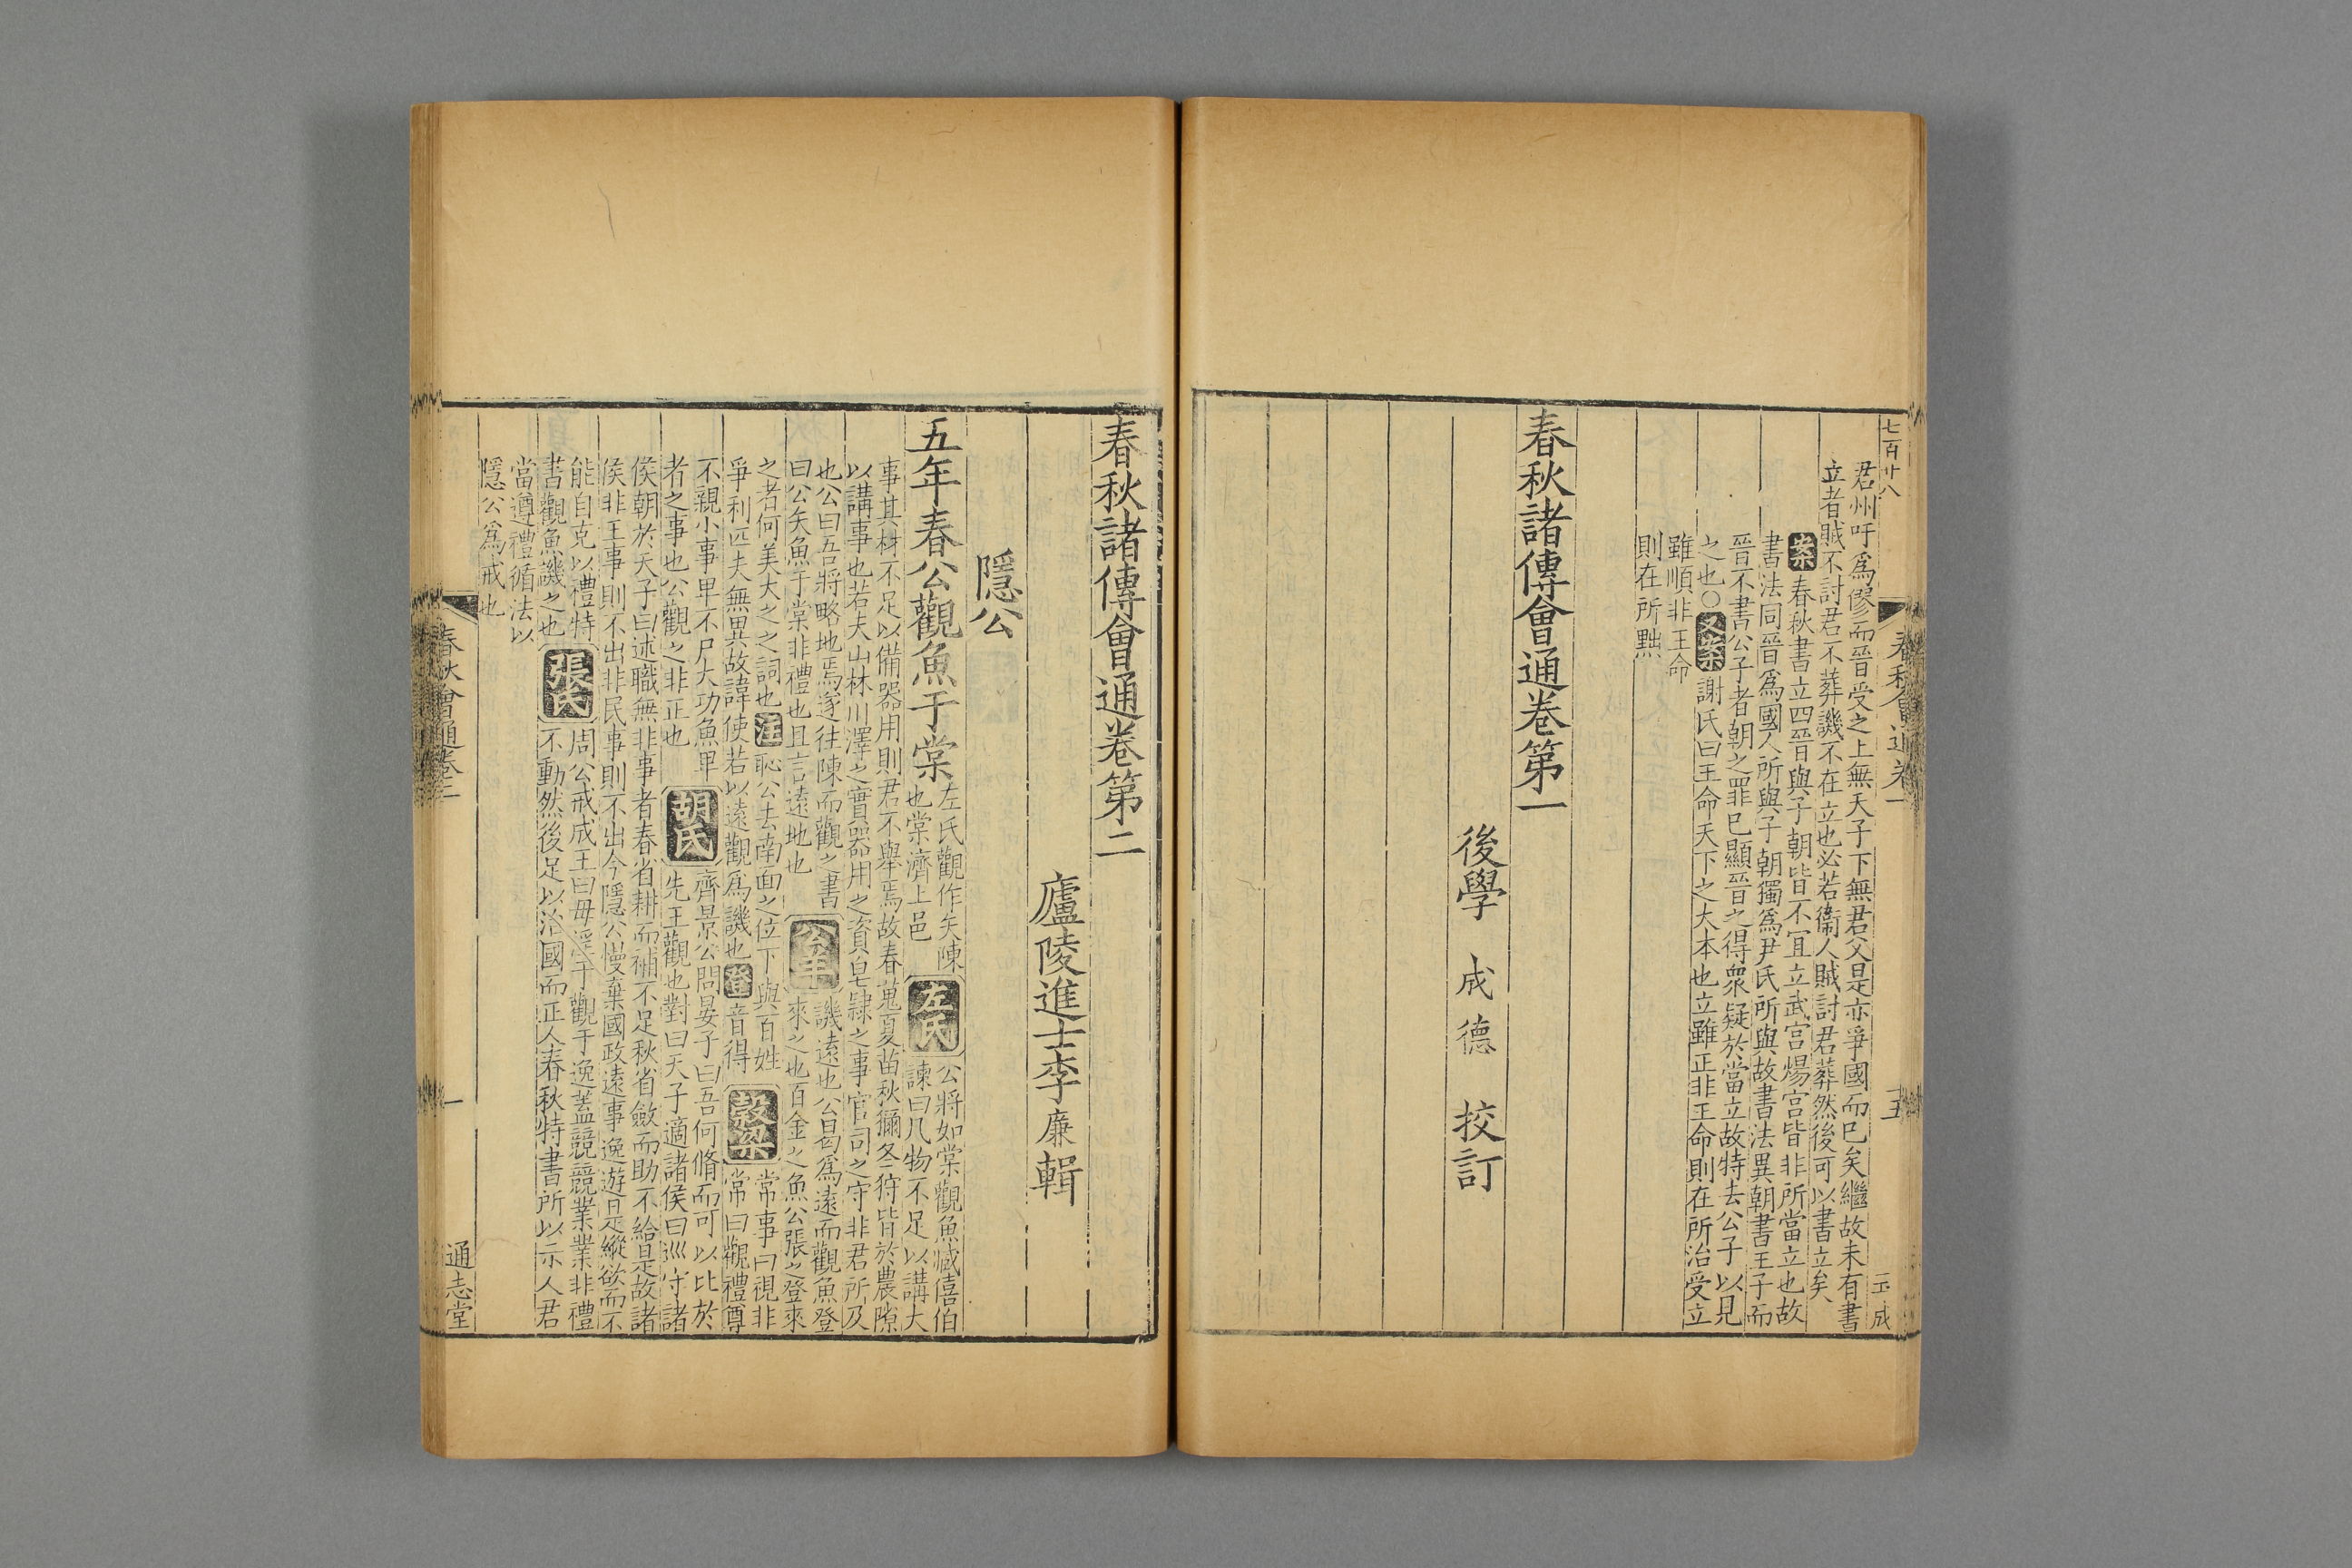 七百廿八
君州吁爲僇而晉受之上無天子下無君父是亦爭國而已矣繼故未有書
立者賊不討君不葬譏不在立也必若衞人賊討君葬然後可以書立矣
案春秋書立四晉與子朝皆不冝立武宫煬宫皆非所當立也故
書法同晉爲國人所與子朝獨爲尹氏所與故書法異朝書王子而
晉不書公子者朝之罪已顯晉之得衆疑於當立故特去公子以見
之也○又案謝氏曰王命天下之大本也立雖正非王命則在所治受立
雖順非王命
則在所黜
春秋諸傳會通卷第一
後學 成德 挍訂
春秋會通卷一
五
王成
春秋諸傳會通卷第二
廬陵進士李廉輯
隱公
五年春公觀魚于棠
左氏觀作矢陳
也棠濟上邑
左氏
公將如棠觀魚臧僖伯
諫曰凡物不足以講大
事其材不足以備器用則君不舉焉故春蒐夏苗秋獮冬狩皆於農隙
以講事也若夫山林川澤之實器用之資皁隸之事官司之守非君所及
也公曰吾將略地焉遂往陳而觀之書
曰公矢魚于棠非禮也且言遠地也
公羊
譏遠也公曷爲遠而觀魚登
來之也百金之魚公張之登來
之者何美大之之詞也注恥公去南面之位下與百姓
爭利匹夫無異故諱使若以遠觀爲譏也登音得
穀梁
常事曰視非
常曰觀禮尊
不親小事卑不尸大功魚卑
者之事也公觀之非正也
胡氏
齊景公問晏子曰吾何脩而可以比於
先王觀也對曰天子適諸侯曰巡守諸
侯朝於天子曰述職無非事者春省耕而補不足秋省斂而助不給是故諸
侯非王事則不出非民事則不出今隱公慢棄國政遠事逸遊是縱欲而不
能自克以禮特
書觀魚譏之也
張氏
周公戒成王曰毋淫于觀于逸盖兢兢業業非禮
不動然後足以治國而正人春秋特書所以示人君
當遵禮循法以
隱公爲戒也
春秋會通卷二
一
通志堂